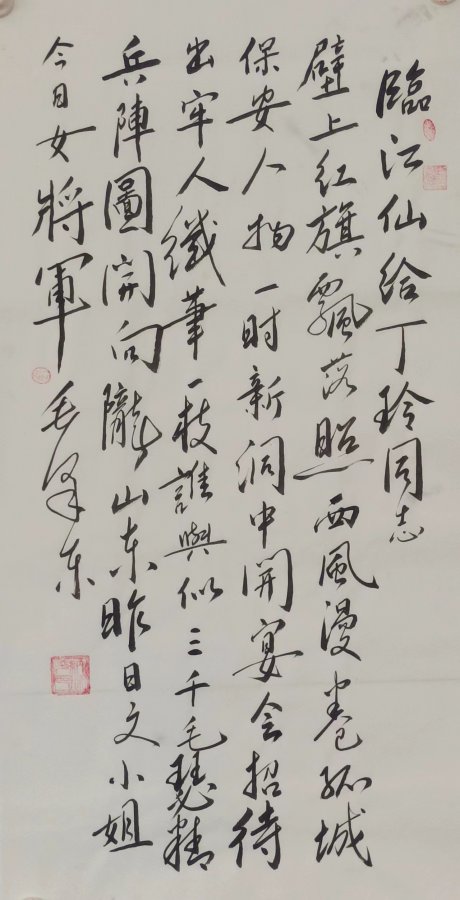 臨江仙给丁玲同志
壁上红旗飄落照西風漫卷孤城
保安人物一时新洞中開宴会招待
出牢人纖筆一枝誰與似三千毛瑟精
兵陣圖開向隴山东昨日文小姐
今日女將軍 毛泽东